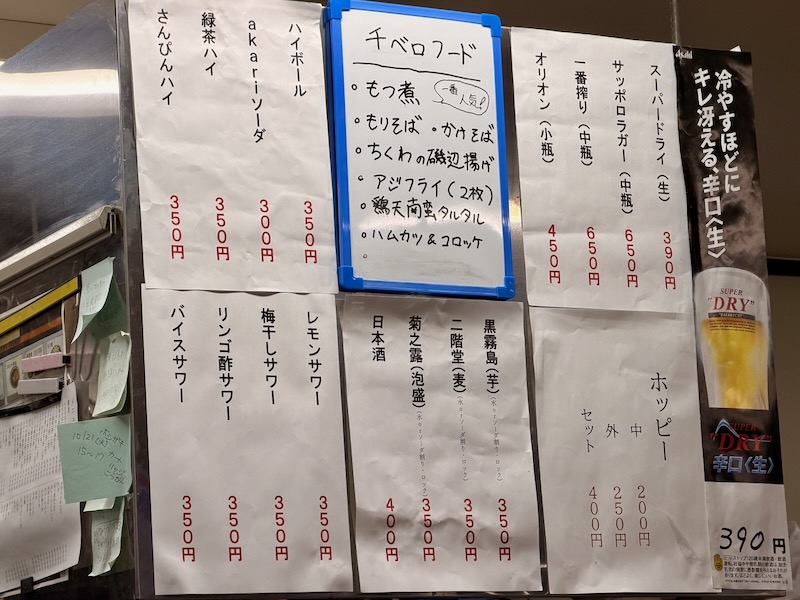 ハイボール 350円
akariソーダ 300円
緑茶ハイ 350円
さんぴんハイ 350円
チベロフード
・もつ煮
一番人気!
・もりそば ・かけそば
・ちくわの磯辺揚げ
・アジフライ(2枚)
・鶏天南蛮タルタル
・ハムカツ&コロッケ
スーパードライ(生) 390円
サッポロラガー(中瓶) 650円
一番搾り(中瓶) 650円
オリオン(小瓶) 450円
レモンサワー 350円
梅干しサワー 350円
リンゴ酢サワー 350円
バイスサワー 350円
黒霧島(芋)(水orソーダ割り・ロック) 350円
二階堂(麦)(水orソーダ割り・ロック) 350円
菊之露(泡盛)(水orソーダ割り・ロック) 350円
日本酒 400円
ホッピー
中 200円
外 250円
セット 400円
Asahi
冷やすほどに
キレ冴える、辛口〈生〉
SUPER
"DRY"
SUPER
"DRY"
辛口〈生〉
390円
10/21(火)